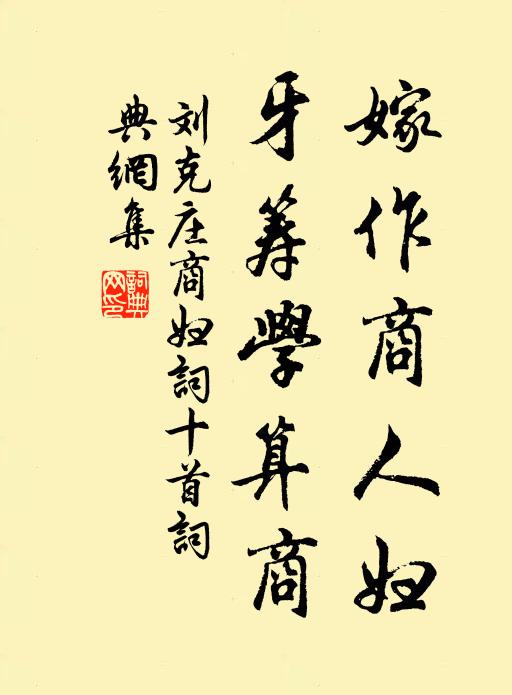 嫁作商人妇
牙筹学算商
刘克庄商妇词十首词
典网集
詞典
网印